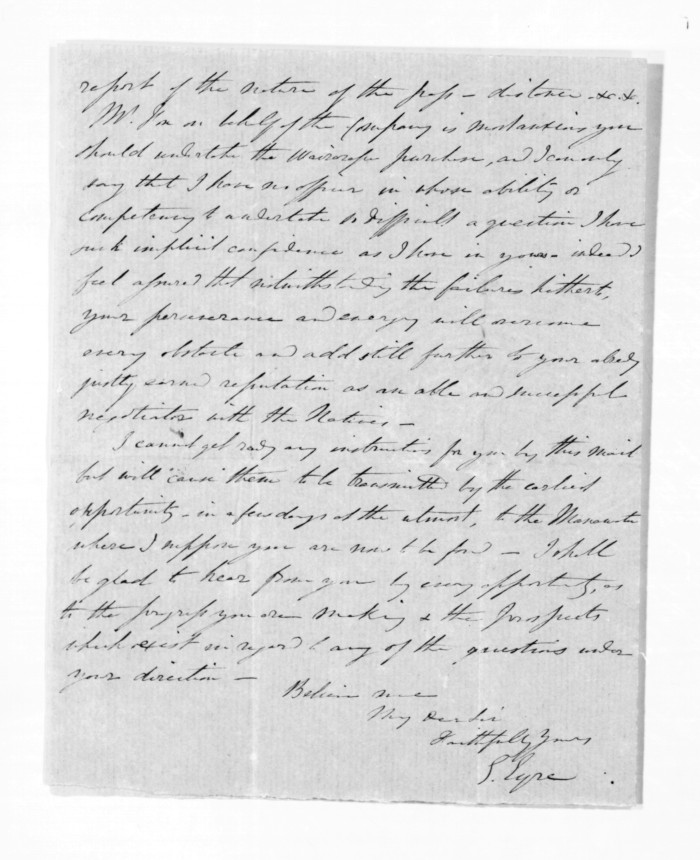 report of the nature of the pass – distance &c &c.
Mr. Fox on behalf of the Company is most anxious you
should undertake the Wairarapa purchase, and I can only
say that I have no officer in whose ability or
competency to undertake so difficult a question I have
such implicit confidence as I have in yours – indeed I
feel assured that notwithstanding the failures hitherto,
your perseverance and energy will overcome
every obstacle and add still further to your already
justly earned reputation as an able and successful
negotiator with the Natives –
I cannot get ready any instructions for you by this mail
but will cause them to be transmitted by the earliest
opportunity – in a few days at the utmost, to the Manawatu
where I suppose you are now to be found – I shall
be glad to hear from you by every opportunity, as
to the progress you are making & the prospects
which exist in regard to any of the questions under
your direction –
Believe me
My dear Sir
Faithfully Yours
E. Eyre